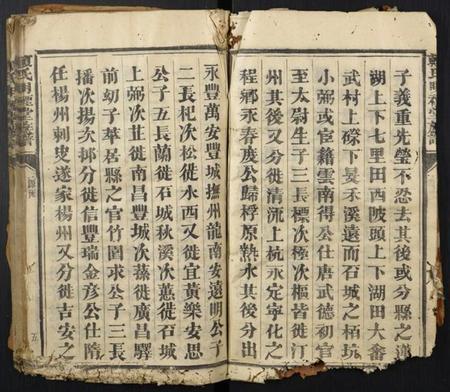 子義重先瑩不忍去其後或分縣之潭
湖上下七里田西陂頭上下湖田大畲
武村上磜下晏禾溪遠而石城之栢坑
小彌或宦籍雲南得公仕唐武德初官
至太尉生子三長標次極次樞皆徙汀
州其後又分徙清流上杭永定寧化之
程鄉永春慶公歸桴原熱水其後分出
永豐萬安豐城撫州龍南安遠明公子
二長杞次松徙水西又徙宜黃樂安思
公子五長蘭徙石城秋溪次蕙徙石城
上彌次茳徙南昌豐城次蕬徙廣昌驛
前幼子華居縣之官竹圍求公子三長
播次揚次邦分徙信豐瑞金彥公仕隋
任楊州剌史遂家楊州又分徙吉安之